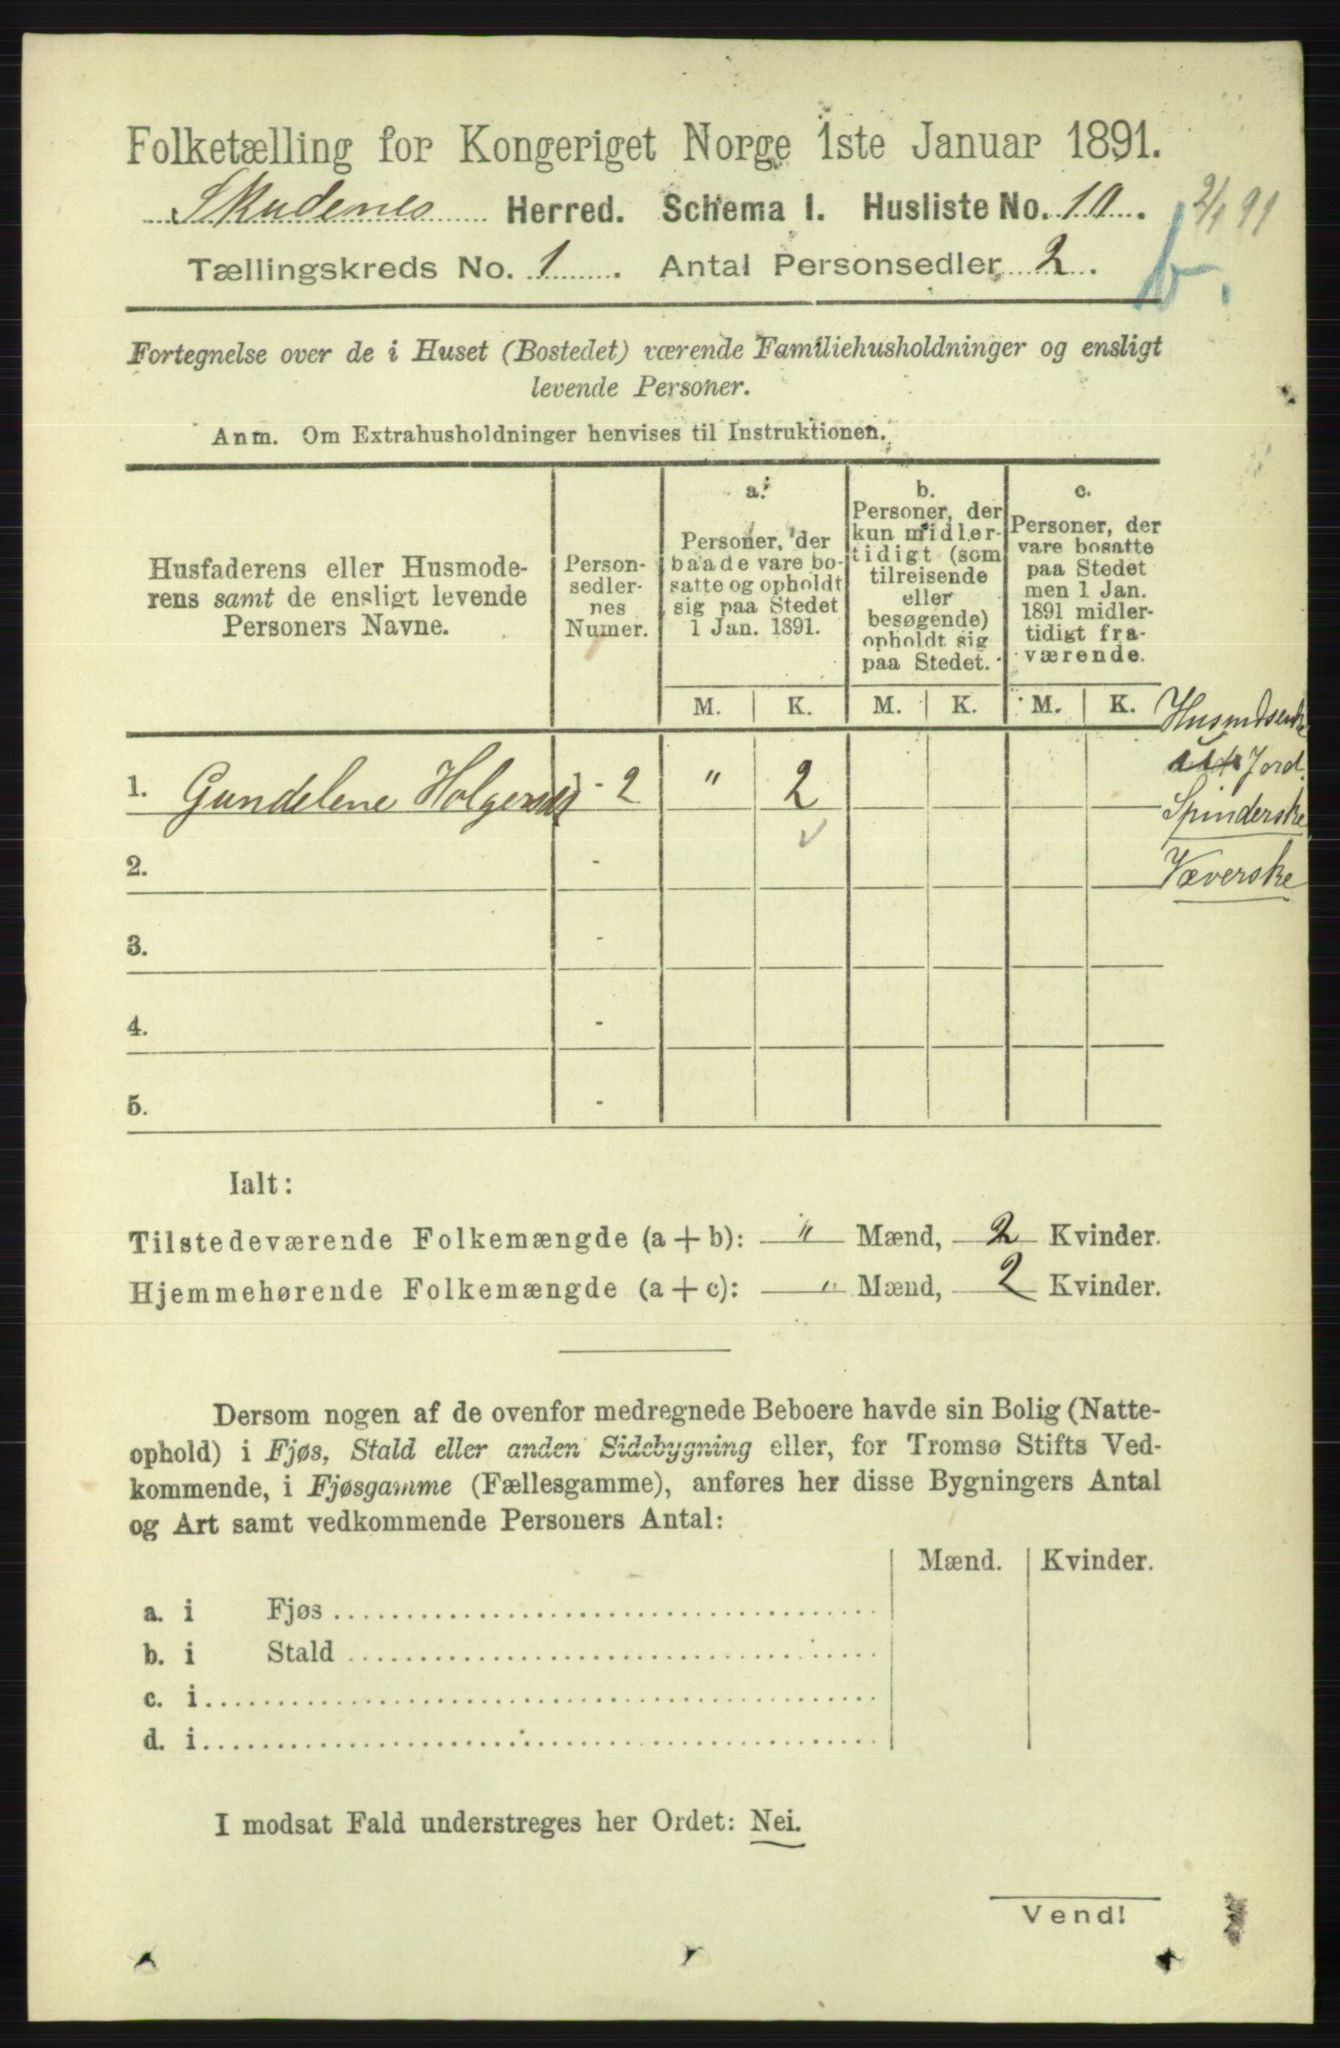 Folketælling for Kongeriget Norge 1ste Januar 1891.
Skudenes Herred. Schema I. Husliste No. 10. 2/1 91
Tællingskreds No. 1. Antal Personsedler 2. b.
Fortegnelse over de i Huset (Bostedet) værende Familiehusholdninger og ensligt
levende Personer.
Anm. Om Extrahusholdninger henvises til Instruktionen.
Husfaderens eller Husmode-
rens samt de ensligt levende
Personers Navne.
Person-
sedler-
nes
Numer.
a.
Personer, der
baade vare bo-
satte og opholdt
sig paa Stedet
1 Jan. 1891.
b.
Personer, der
kun midler-
tidigt (som
tilreisende
eller
besøgende)
opholdt sig
paa Stedet.
c.
Personer, der
vare bosatte
paa Stedet
men 1 Jan.
1891 midler-
tidigt fra-
værende.
M. K. M. K. M. K.
1. Gundelene Holgersd 1 - 2 " 2
Jord
Spinderske
Væverske
2. -
3. -
4. -
5. -
Ialt:
Tilstedeværende Folkemængde (a + b): " Mænd, 2 Kvinder.
Hjemmehørende Folkemængde (a + c): " Mænd, 2 Kvinder.
Dersom nogen af de ovenfor medregnede Beboere havde sin Bolig (Natte-
ophold) i Fjøs, Stald eller anden Sidebygning eller, for Tromsø Stifts Ved-
kommende, i Fjøsgamme (Fællesgamme), anføres her disse Bygningers Antal
og Art samt vedkommende Personers Antal:
Mænd. Kvinder.
a. i Fjøs
b. i Stald
c. i
d. i
I modsat Fald understreges her Ordet: Nei.
Vend!